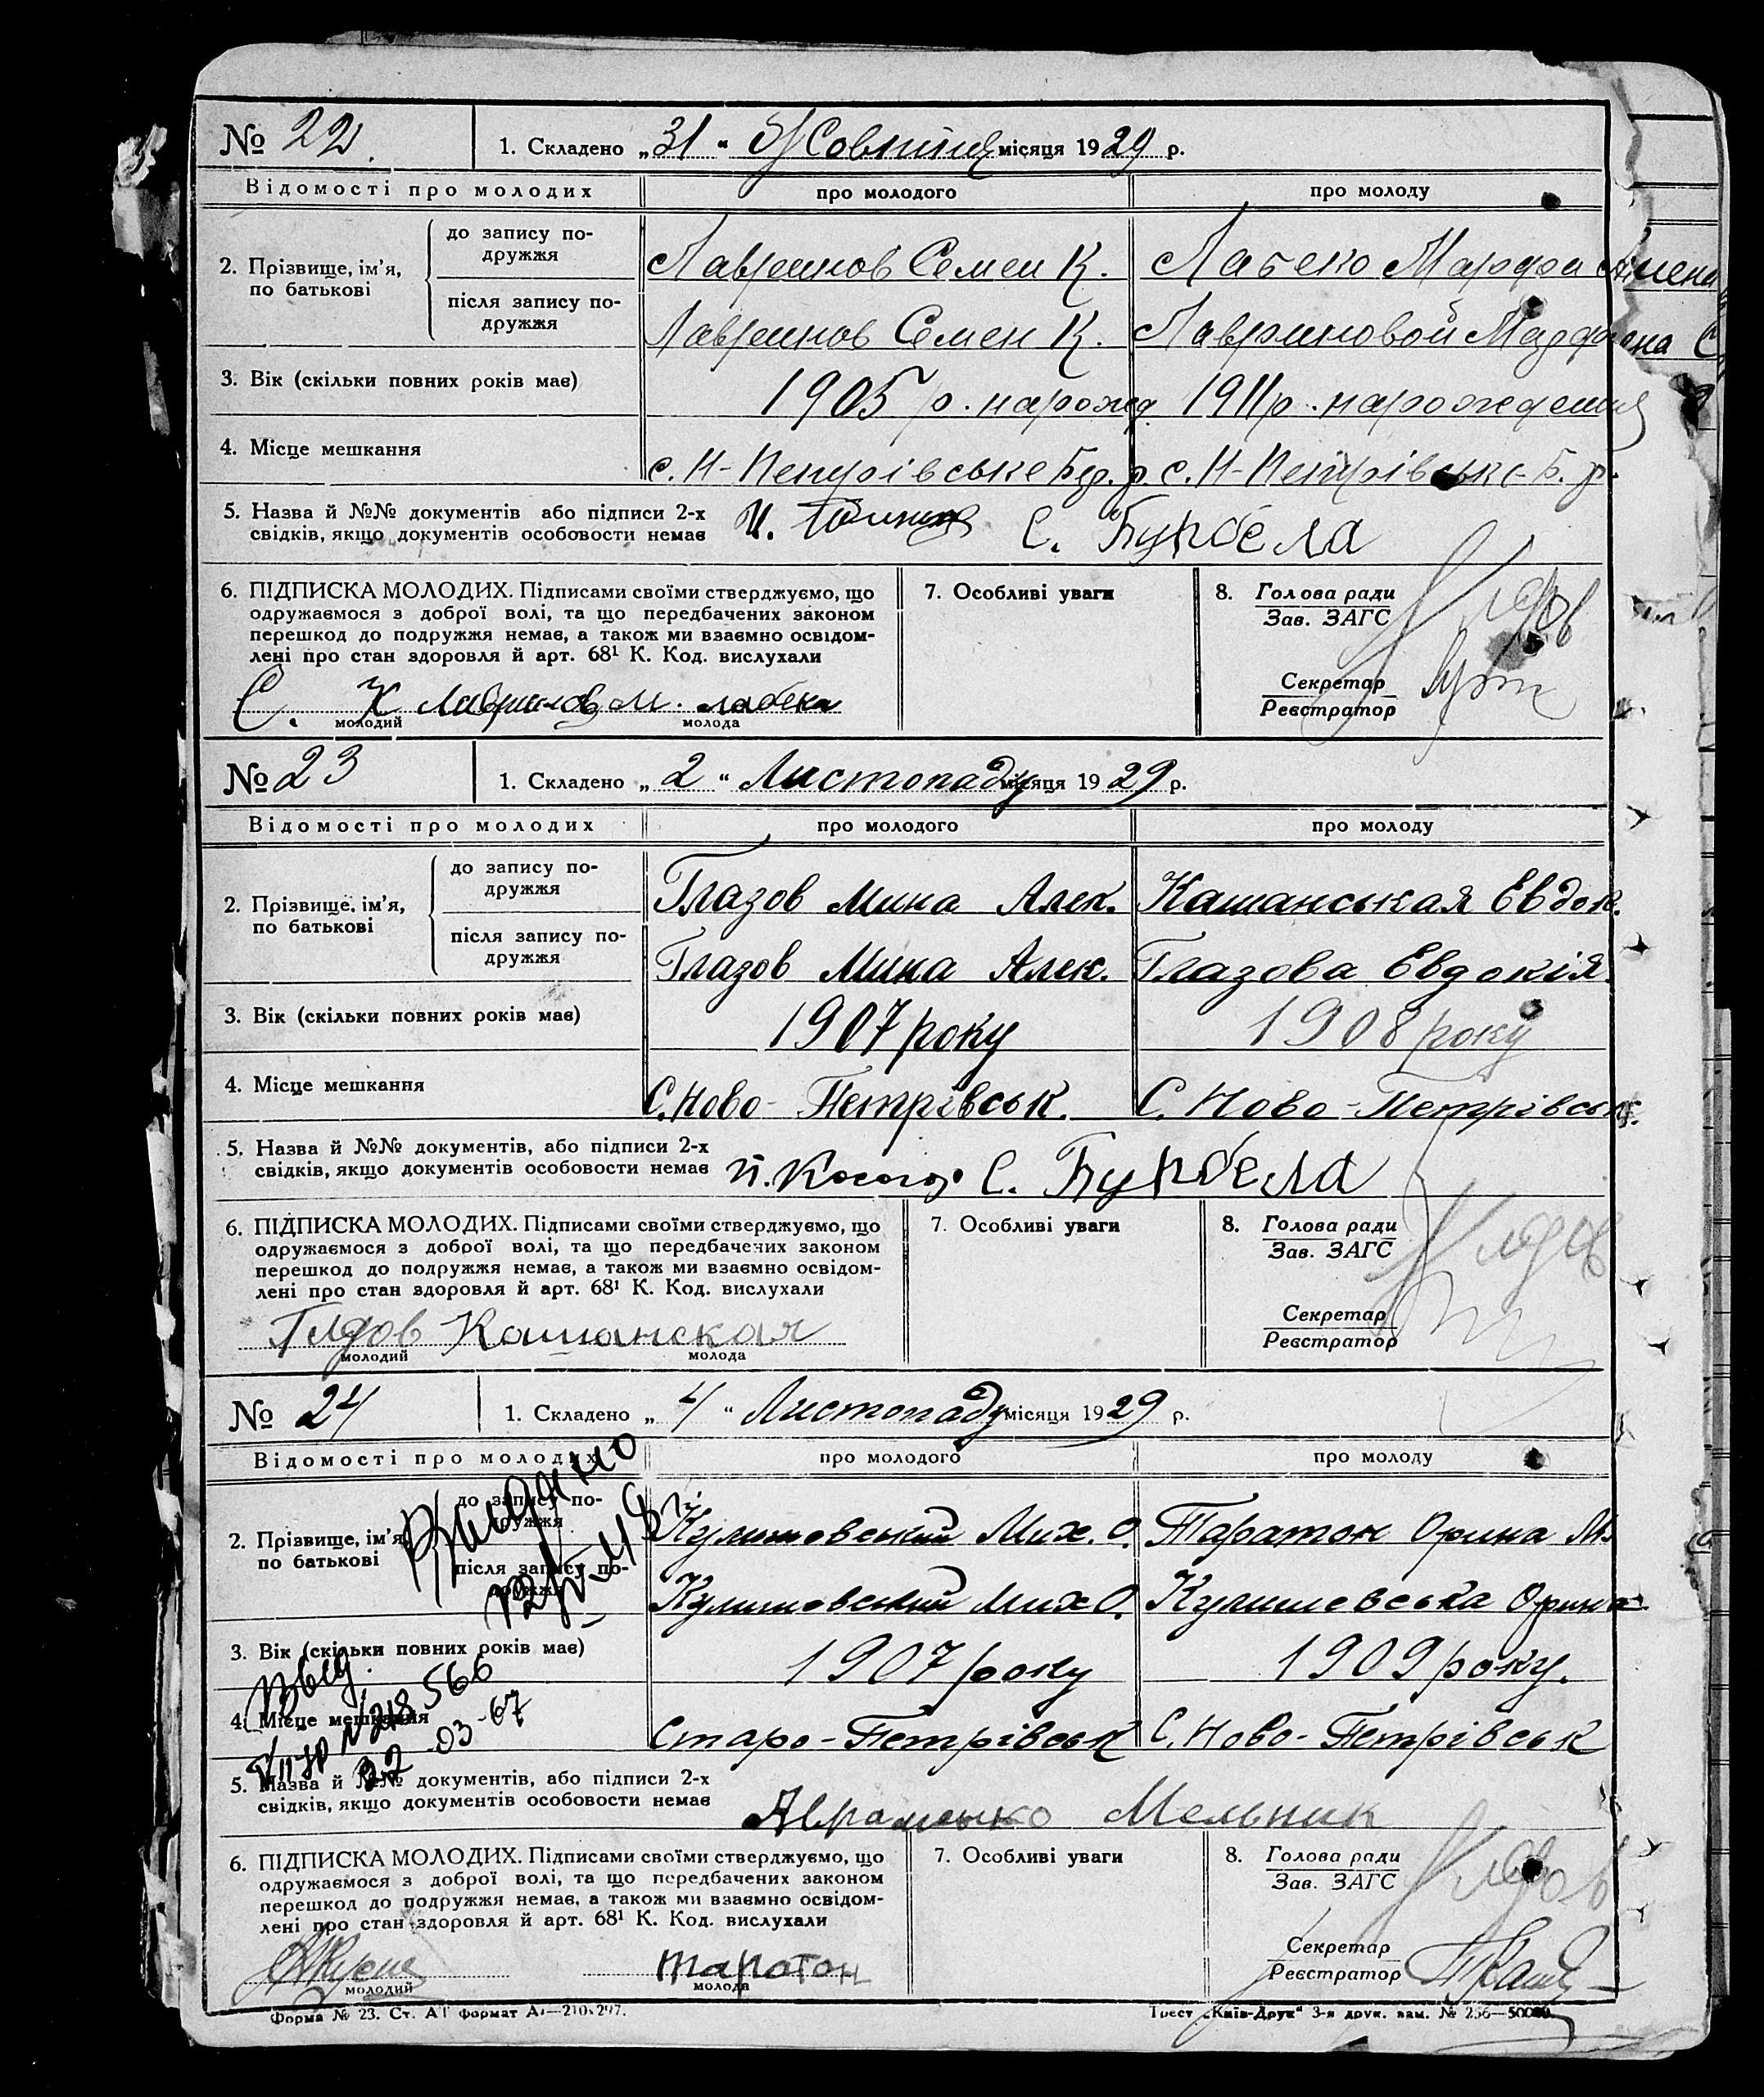 № 22. 1. Складено „31“ Жовтня місяця 1929 р.
Відомості про молодих про молодого про молоду
2. Прізвище, ім’я, по батькові
до запису подружжя Лавринов Семен К. Лабеко Марфа
після запису подружжя Лавринов Семен К. Лавриновой Марфа
3. Вік (скільки повних років має) 1905 р. нарожд 1911 р. нарождения
4. Місце мешкання с. Н-Петрівське Бер. р. с. Н-Петрівське Б. р.
5. Назва й №№ документів або підписи 2-х
свідків, якщо документів особовости немає С. Бурбела
6. ПІДПИСКА МОЛОДИХ. Підписами своїми стверджуємо, що
одружаємося з доброї волі, та що передбачених законом
перешкод до подружжя немає, а також ми взаємно освідом-
лені про стан здоровля й арт. 68¹ К. Код. вислухали
7. Особливі уваги
8. Голова ради
Зав. ЗАГС
Секретар
Реєстратор
С. К Лавринов М. Лабека
молодий молода
№ 23 1. Складено „2“ Листопаду місяця 1929 р.
Відомості про молодих про молодого про молоду
2. Прізвище, ім’я, по батькові
до запису подружжя Глазов Мина Алек. Кашанськая Евдок.
після запису подружжя Глазов Мина Алек. Глазова Евдокія.
3. Вік (скільки повних років має) 1907 року 1908 року
4. Місце мешкання С. Ново-Петрівськ. С. Ново-Петрівськ.
5. Назва й №№ документів, або підписи 2-х
свідків, якщо документів особовости немає С. Бурбела
6. ПІДПИСКА МОЛОДИХ. Підписами своїми стверджуємо, що
одружаємося з доброї волі, та що передбачених законом
перешкод до подружжя немає, а також ми взаємно освідом-
лені про стан здоровля й арт. 68¹ К. Код. вислухали
7. Особливі уваги
8. Голова ради
Зав. ЗАГС
Секретар
Реєстратор
Кашанская
молодий молода
№ 24 1. Складено „4“ Листопаду місяця 1929 р.
Відомості про молодих про молодого про молоду
2. Прізвище, ім’я, по батькові
до запису подружжя Кулишовський Мих. О. Таратон Орина
після запису подружжя Кулишовський Мих О. Кулишевська Орина
3. Вік (скільки повних років має) 1907 року 1909 року.
4. Місце мешкання Старо-Петрівськ С. Ново-Петрівськ
5. Назва й №№ документів, або підписи 2-х
свідків, якщо документів особовости немає Авраменко Мельник
6. ПІДПИСКА МОЛОДИХ. Підписами своїми стверджуємо, що
одружаємося з доброї волі, та що передбачених законом
перешкод до подружжя немає, а також ми взаємно освідом-
лені про стан здоровля й арт. 68¹ К. Код. вислухали
7. Особливі уваги
8. Голова ради
Зав. ЗАГС
Секретар
Реєстратор
таротон
молодий молода
Форма № 23. Ст. АІ формат А₄—210×297. Трест „Київ-Друк“ 3-я друк. зам. № 256—50000.